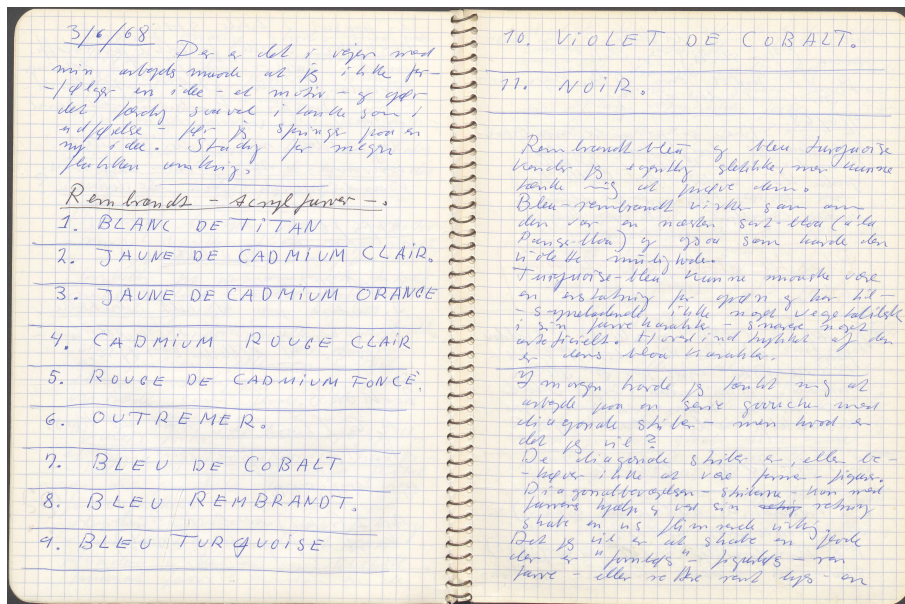 3/6/68
Der er det i vejen med
min arbejds maade at jeg ikke for-
-følger en idee - et motiv - og gør
det færdig saavel i tanke som i
udførelse - før jeg springer paa en
ny idee. Stadig for megen
flakken omkring.
Rembrandt - acryl farver -.
1. BLANC DE TiTAN
2. JAUNE DE CADMiUM CLAIR.
3. JAUNE DE CADMIUM ORANGE
4. CADMIUM ROUGE CLAIR
5. ROUGE DE CADMIUM FONCÉ.
6. OUTREMER.
7. BLEU DE COBALT
8. BLEU REMBRANDT.
9. BLEU TURQUOISE
10. ViOLET DE COBALT.
11. NOiR.
Rembrandt bleu og bleu turquoise
kender jeg egentlig slet ikke, men kunne
tænke mig at prøve dem.
Bleu-rembrandt virker som om
den var en næsten sort-blaa (a'la
Paris-blaa) og ogsaa som havde den
violette muligheder.
Turquoise-bleu kunne maaske være
en erstatning for grøn og har til-
-syneladende ikke noget vegetabilsk
i sin farvekarakter - snarere noget
arteficielt. Hovedindtrykket af den
er dens blaa karakter.
I morgen havde jeg tænkt mig at
arbejde paa en serie gouacher med
diagonale striber - men hvad er
det jeg vil?
De diagonale striber er, eller be-
-høver ikke at være farver - figurer.
Diagonalbevægelsen - striberne - kan med
farvens hjælp og ved sin retning
skabe en vis flimrende virkning.
Det jeg vil er at skabe en flade
der er "formløs" - figurløs - ren
farve - eller rettere rent lys - en